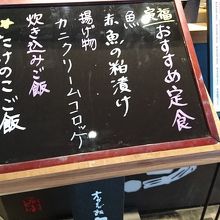 家福おすすめ定食
魚
赤魚の粕漬け
揚げ物
カニクリームコロッケ
炊き込みご飯
たけのこご飯